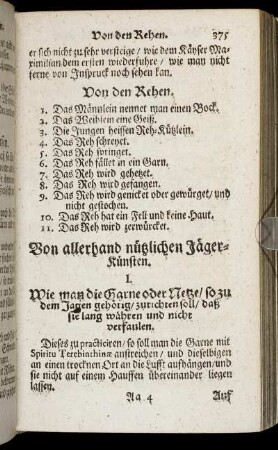 Von den Rehen. 375
er sich nicht zu sehr versteige / wie dem Käyser Ma-
ximilian dem ersten wiederfuhre / wie man nicht
ferne von Inspruck noch sehen kan.
Von den Rehen.
1. Das Männlein nennet man einen Bock.
2. Das Weiblein eine Geiß.
3. Die Jungen heissen Reh-Kützlein.
4. Das Reh schreyet.
5. Das Reh springet.
6. Das Reh fället in ein Garn.
7. Das Reh wird gehetzet.
8. Das Reh wird gefangen.
9. Das Reh wird genicket oder gewürget/ und
nicht gestochen.
10. Das Reh hat ein Fell und keine Haut.
11. Das Reh wird zerwürcket.
Von allerhand nützlichen Jäger-
Künsten.
I.
Wie man die Garne oder Netze/ so zu
dem Jagen gehörig/ zurichten soll/ daß
sie lang währen und nicht
verfaulen.
Dieses zu practiciren/ so soll man die Garne mit
Spiritu Terebinthinæ anstreichen/ und dieselbigen
an einen trocknen Ort an die Lufft aufhängen/ und
sie nicht auf einem Hauffen übereinander liegen
lassen.
Aa 4 Auf